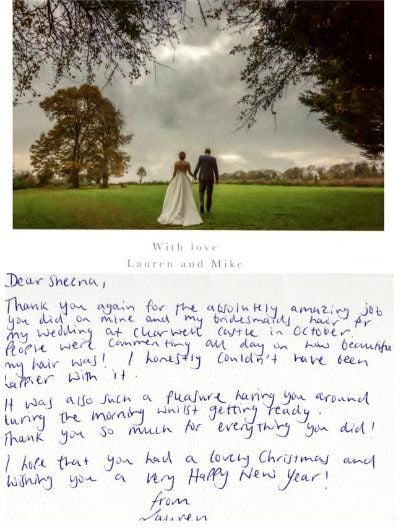 With love
Lauren and Mike
Dear Sheena,
Thank you again for the absolutely amazing job
you did on mine and my bridesmaids hair for
my wedding at Charwell Castle in October!
People were commenting all day on how beautiful
my hair was! I honestly couldn't have been
happier with it.
It was also such a pleasure having you around
during the morning whilst getting ready.
Thank you so much for everything you did!
I hope that you had a lovely Christmas and
wishing you a very Happy New Year!
from
Lauren